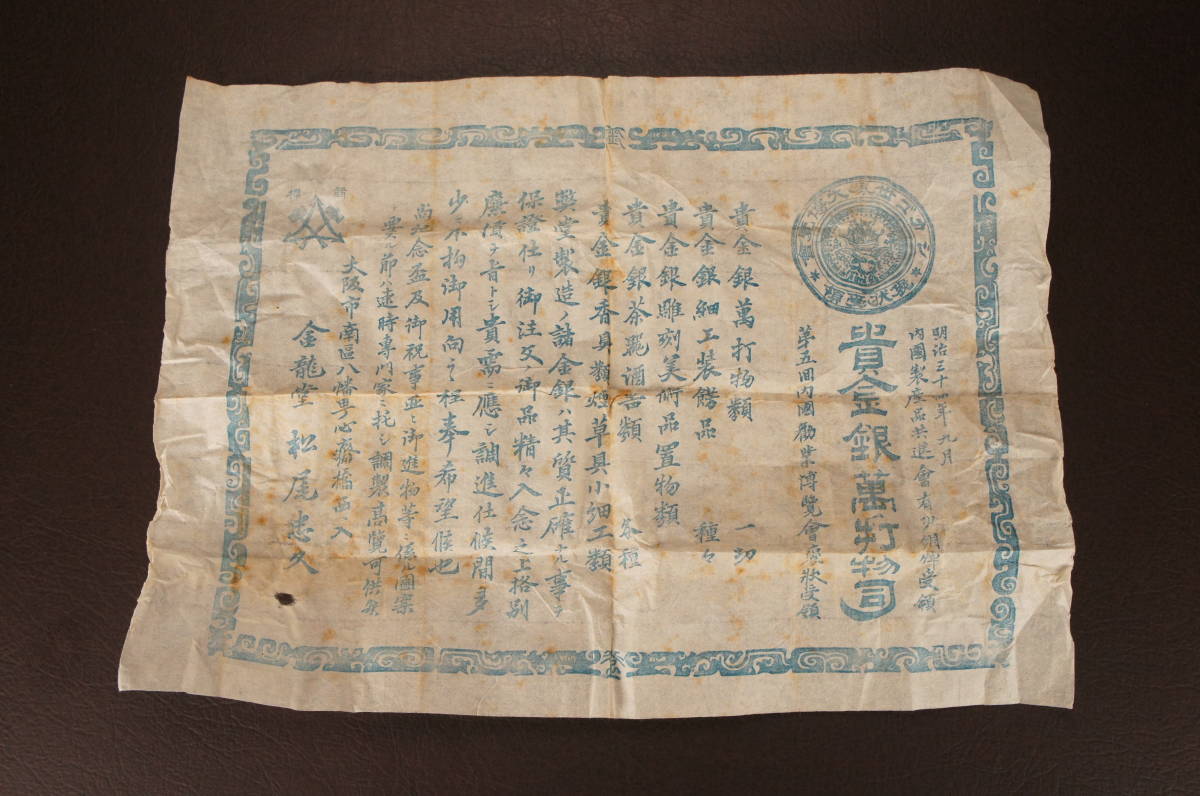 明治三十四年九月
内國製産品共進會有功銅牌受領
貴金銀萬打物司
第五回内國勧業博覧會褒状受領
貴金銀萬打物類 一切
貴金銀細工装飾品 種々
貴金銀雕刻美術品置物類
貴金銀茶器酒壺類 各種
貴金銀香具類煙草具小細工類
弊堂製造ノ諸金銀ハ其質正確ナル事ヲ
保證仕リ御注文ノ御品精々入念之上格別
廉價ヲ旨トシ貴需ニ應シ調進仕候間多
少ニ不拘御用向之程奉希望候也
尚紀念盃及御祝事並ニ御進物等ニ係ル圖案
ヲ要スル節ハ速時専門家ニ托シ調製高覧可供候
大阪市南區八幡筋心齋橋西入
金龍堂 松尾忠久